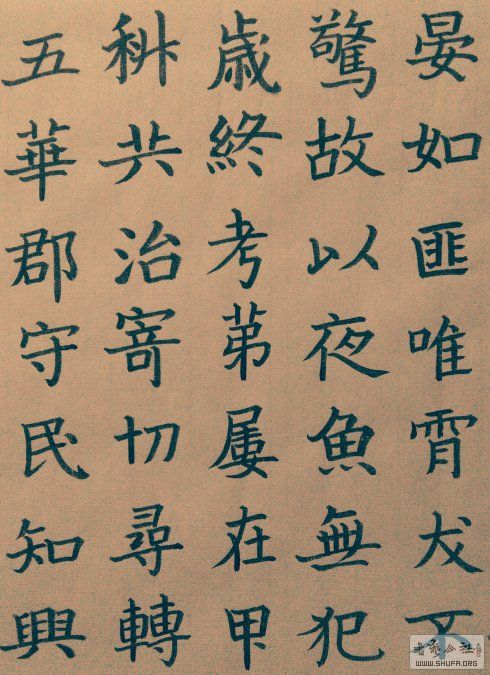 晏如匪唯霄犬不
驚故以夜魚無犯
歳終考苐屢在甲
科共治寄切尋轉
五華郡守民知興
WWW.SHUFA.ORG